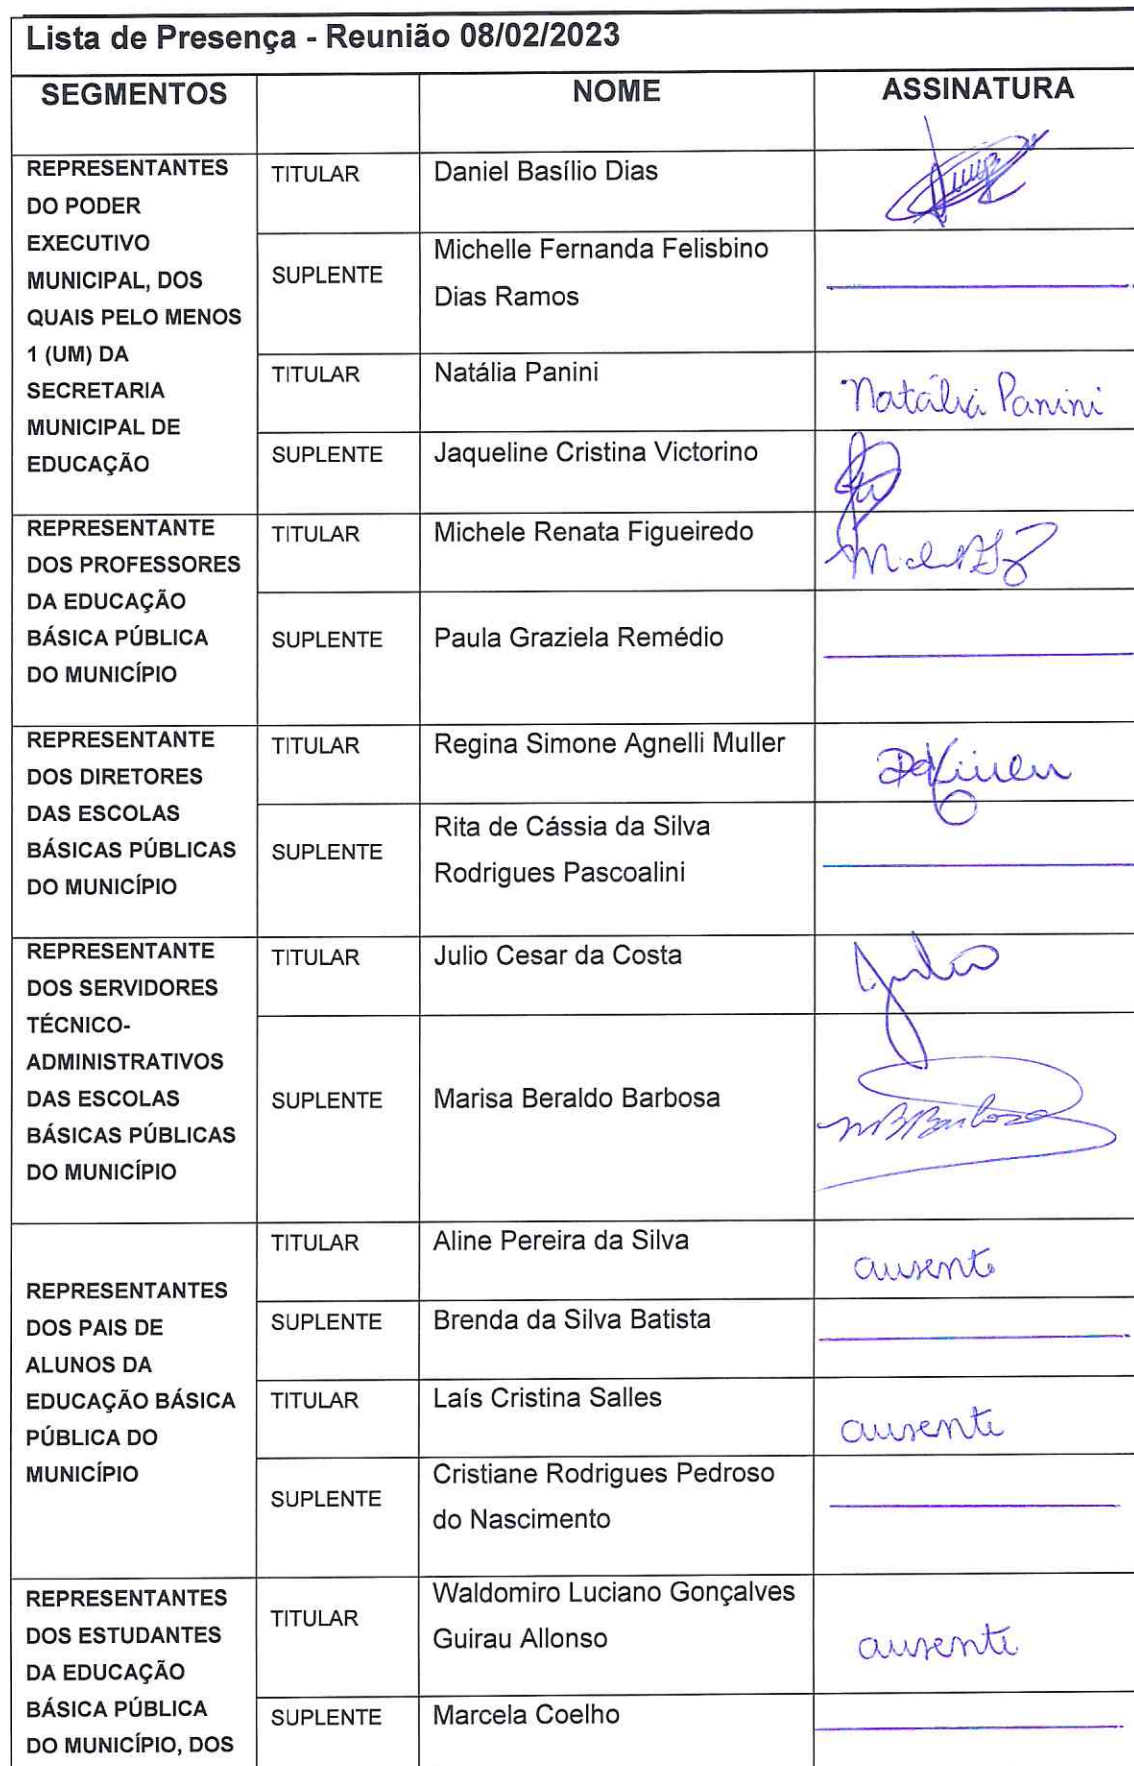 Lista de Presença - Reunião 08/02/2023
SEGMENTOS NOME ASSINATURA
REPRESENTANTES
DO PODER
EXECUTIVO
MUNICIPAL, DOS
QUAIS PELO MENOS
1 (UM) DA
SECRETARIA
MUNICIPAL DE
EDUCAÇÃO
TITULAR Daniel Basílio Dias
SUPLENTE Michelle Fernanda Felisbino
Dias Ramos
TITULAR Natália Panini Natália Panini
SUPLENTE Jaqueline Cristina Victorino
REPRESENTANTE
DOS PROFESSORES
DA EDUCAÇÃO
BÁSICA PÚBLICA
DO MUNICÍPIO
TITULAR Michele Renata Figueiredo
SUPLENTE Paula Graziela Remédio
REPRESENTANTE
DOS DIRETORES
DAS ESCOLAS
BÁSICAS PÚBLICAS
DO MUNICÍPIO
TITULAR Regina Simone Agnelli Muller
SUPLENTE Rita de Cássia da Silva
Rodrigues Pascoalini
REPRESENTANTE
DOS SERVIDORES
TÉCNICO-
ADMINISTRATIVOS
DAS ESCOLAS
BÁSICAS PÚBLICAS
DO MUNICÍPIO
TITULAR Julio Cesar da Costa Julio
SUPLENTE Marisa Beraldo Barbosa MBBarbosa
REPRESENTANTES
DOS PAIS DE
ALUNOS DA
EDUCAÇÃO BÁSICA
PÚBLICA DO
MUNICÍPIO
TITULAR Aline Pereira da Silva ausente
SUPLENTE Brenda da Silva Batista
TITULAR Laís Cristina Salles ausente
SUPLENTE Cristiane Rodrigues Pedroso
do Nascimento
REPRESENTANTES
DOS ESTUDANTES
DA EDUCAÇÃO
BÁSICA PÚBLICA
DO MUNICÍPIO, DOS
TITULAR Waldomiro Luciano Gonçalves
Guirau Allonso ausente
SUPLENTE Marcela Coelho